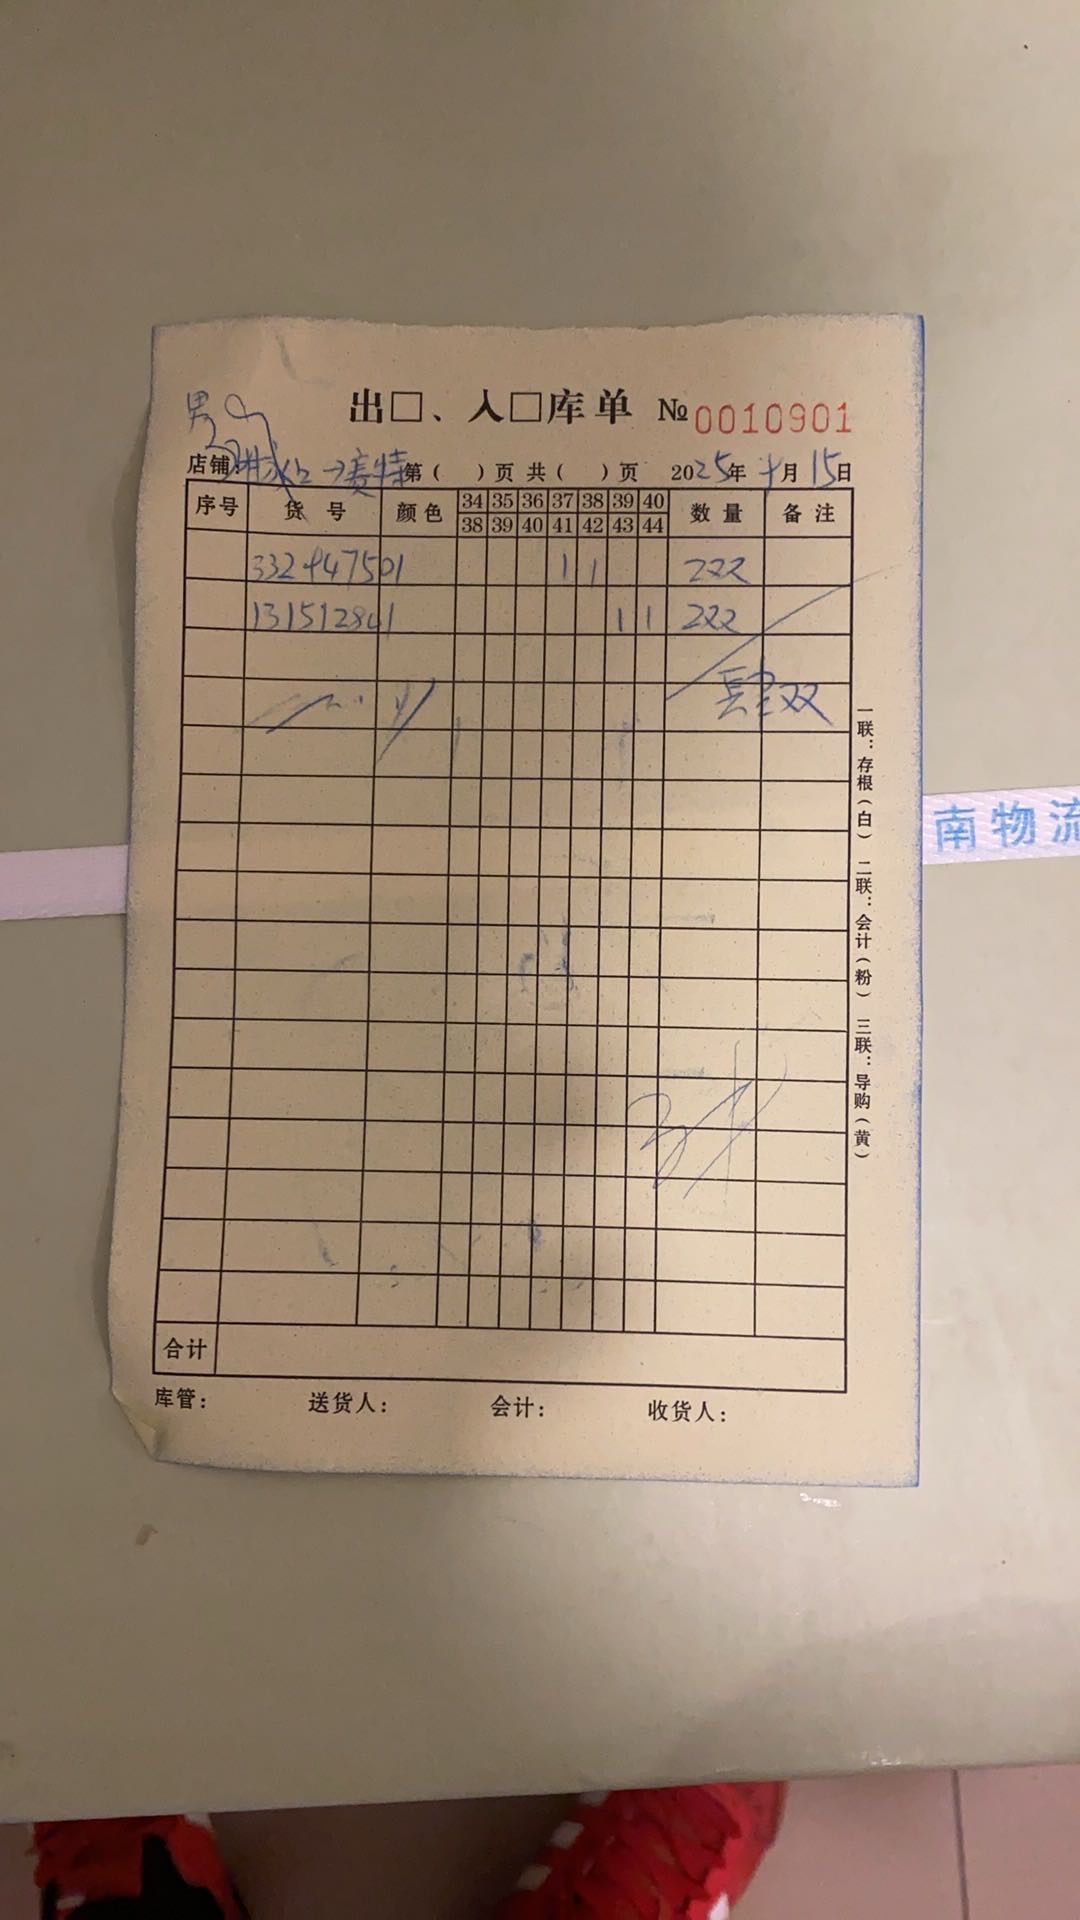 出□、入□库单 № 0010901
男
店铺: →赛特 第( )页 共( )页 2025年 月15日
序号 货号 颜色 34 35 36 37 38 39 40 数量 备注
38 39 40 41 42 43 44
332447501 1 1 2双
131512841 1 1 2双
肆双
合计
库管: 送货人: 会计: 收货人:
一联:存根(白) 二联:会计(粉) 三联:导购(黄)
南物流